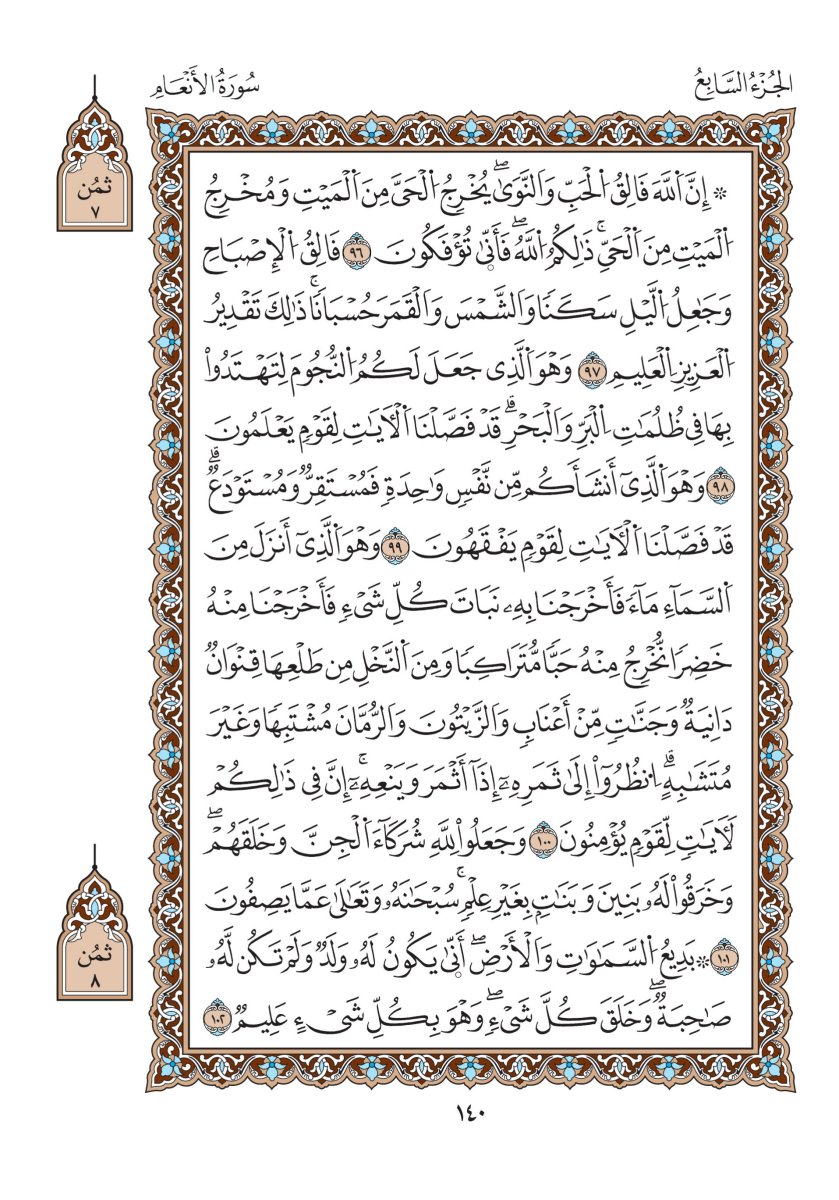 الجُزْءُ السَّابِعُ
سُورَةُ الأَنْعَامِ
ثمُن
٧
۞ إِنَّ ٱللَّهَ فَالِقُ ٱلْحَبِّ وَٱلنَّوَىٰۖ يُخْرِجُ ٱلْحَيَّ مِنَ ٱلْمَيْتِ وَمُخْرِجُ
ٱلْمَيْتِ مِنَ ٱلْحَيِّۚ ذَٰلِكُمُ ٱللَّهُۖ فَأَنّٜىٰ تُؤْفَكُونَ ٩٦ فَالِقُ ٱلْإِصْبَاحِ
وَجَٰعِلُ ٱلَّيْلِ سَكَنًا وَٱلشَّمْسَ وَٱلْقَمَرَ حُسْبَانًاۚ ذَٰلِكَ تَقْدِيرُ
ٱلْعَزِيزِ ٱلْعَلِيمِ ٩٧ وَهْوَ ٱلَّذِى جَعَلَ لَكُمُ ٱلنُّجُومَ لِتَهْتَدُوا۟
بِهَا فِى ظُلُمَٰتِ ٱلْبَرِّ وَٱلْبَحْرِۗ قَدْ فَصَّلْنَا ٱلْأٓيَٰتِ لِقَوْمٍ يَعْلَمُونَ
٩٨ وَهْوَ ٱلَّذِىٓ أَنشَأَكُم مِّن نَّفْسٍ وَٰحِدَةٍ فَمُسْتَقِرٌّ وَمُسْتَوْدَعٌۗ
قَدْ فَصَّلْنَا ٱلْأٓيَٰتِ لِقَوْمٍ يَفْقَهُونَ ٩٩ وَهْوَ ٱلَّذِىٓ أَنزَلَ مِنَ
ٱلسَّمَآءِ مَآءً فَأَخْرَجْنَا بِهِۦ نَبَاتَ كُلِّ شَىْءٍ فَأَخْرَجْنَا مِنْهُ
خَضِرًا نُّخْرِجُ مِنْهُ حَبًّا مُّتَرَاكِبًا وَمِنَ ٱلنَّخْلِ مِن طَلْعِهَا قِنْوَانٌ
دَانِيَةٌ وَجَنَّٰتٍ مِّنْ أَعْنَابٍ وَٱلزَّيْتُونَ وَٱلرُّمَّانَ مُشْتَبِهًا وَغَيْرَ
مُتَشَٰبِهٍۗ ٱنظُرُوٓا۟ إِلَىٰ ثَمَرِهِۦٓ إِذَآ أَثْمَرَ وَيَنْعِهِۦٓۚ إِنَّ فِى ذَٰلِكُمْ
لَأٓيَٰتٍ لِّقَوْمٍ يُؤْمِنُونَ ١٠٠ وَجَعَلُوا۟ لِلَّهِ شُرَكَآءَ ٱلْجِنَّ وَخَلَقَهُمْۖ
وَخَرَقُوا۟ لَهُۥ بَنِينَ وَبَنَٰتٍۭ بِغَيْرِ عِلْمٍۚ سُبْحَٰنَهُۥ وَتَعَٰلَىٰ عَمَّا يَصِفُونَ
ثمُن
٨
١٠١ ۞ بَدِيعُ ٱلسَّمَٰوَٰتِ وَٱلْأَرْضِۖ أَنّٜىٰ يَكُونُ لَهُۥ وَلَدٌ وَلَمْ تَكُن لَّهُۥ
صَٰحِبَةٌۖ وَخَلَقَ كُلَّ شَىْءٍۖ وَهْوَ بِكُلِّ شَىْءٍ عَلِيمٌ ١٠٢
١٤٠